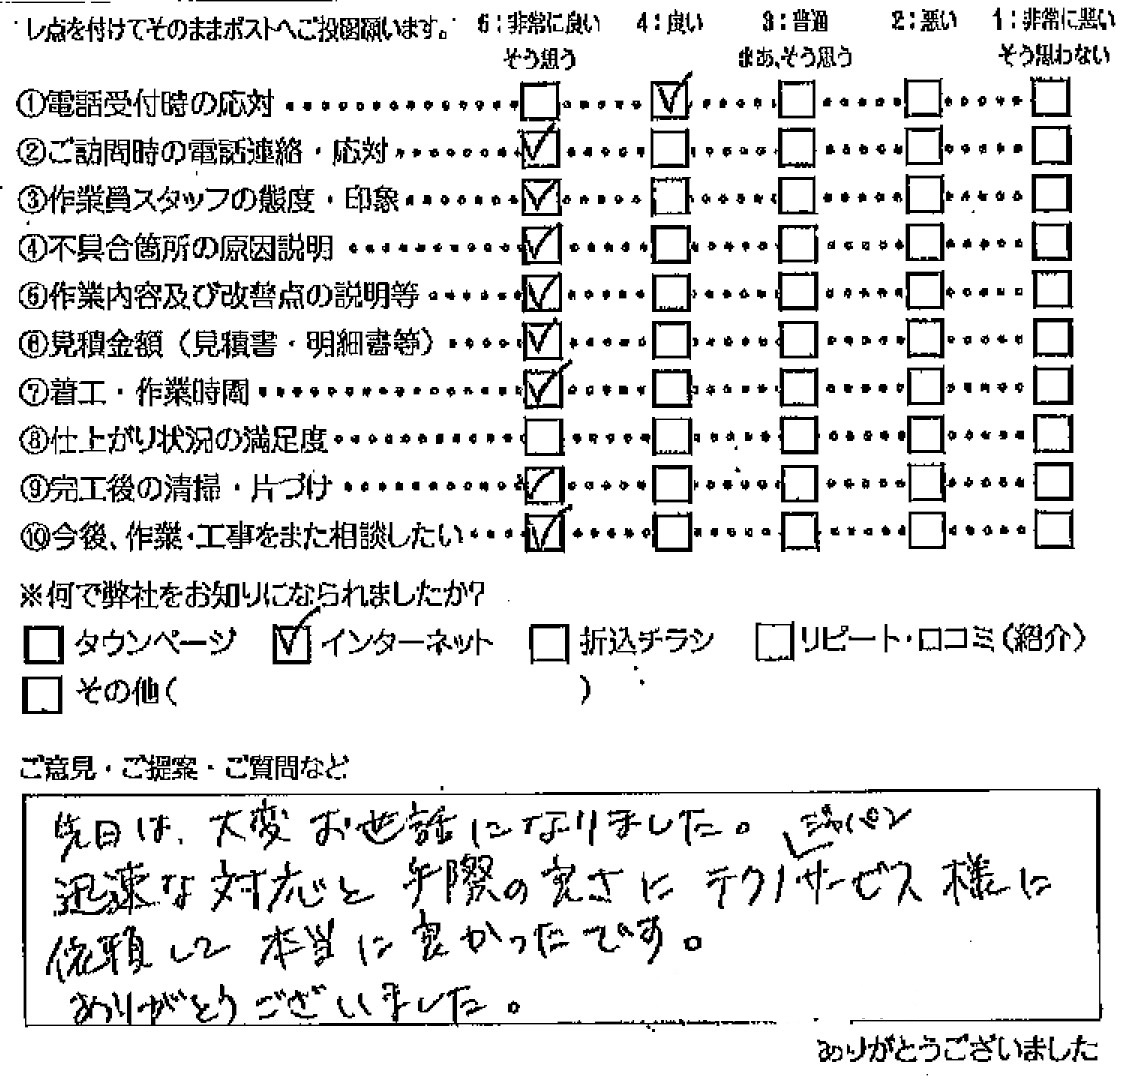 レ点を付けてそのままポストへご投函願います。 5：非常に良い 4：良い 3：普通 2：悪い 1：非常に悪い
そう思う まあ、そう思う そう思わない
①電話受付時の応対
②ご訪問時の電話連絡・応対
③作業員スタッフの態度・印象
④不具合箇所の原因説明
⑤作業内容及び改善点の説明等
⑥見積金額（見積書・明細書等）
⑦着工・作業時間
⑧仕上がり状況の満足度
⑨完工後の清掃・片づけ
⑩今後、作業・工事をまた相談したい
※何で弊社をお知りになられましたか？
タウンページ インターネット 折込チラシ リピート・口コミ（紹介）
その他（ ）
ご意見・ご提案・ご質問など
先日は、大変お世話になりました。
ジャパン
迅速な対応と手際の良さにテクノサービス様に
依頼して本当に良かったです。
ありがとうございました。
ありがとうございました